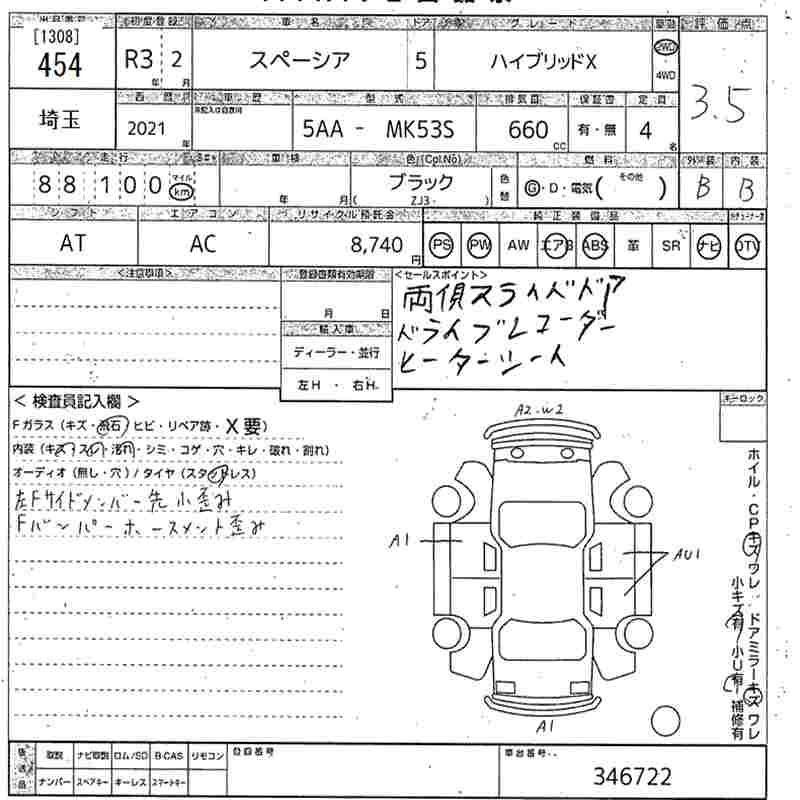 出品番号 初度登録 車名 ドア 形状 グレード 駆動 評価点
[1308]
454 R3 2 スペーシア 5 ハイブリッドX 2WD 3.5
年 月 4WD
埼玉 西暦 車歴 型式 排気量 保証書 定員
2021 年 5AA - MK53S 660 cc 有・無 4 名
走行 車検 色(Cpl.No) 燃料 外装 内装
88100 マイル km 年 月 ブラック (ZJ3 ) 色替 G・D・電気( その他 ) B B
シフト エアコン リサイクル預託金 純正装備品
AT AC 8,740 円 PS PW AW エアB ABS 革 SR ナビ DTV
<注意事項> 登録書類有効期限 <セールスポイント>
月 日
両側スライドドア
ドライブレコーダー
ヒーターシート
輸入車
ディーラー・並行
左H ・ 右H
< 検査員記入欄 > キーロック
Fガラス(キズ・飛石 ヒビ・リペア跡・X要)
内装(キズ・スレ・汚れ・シミ・コゲ・穴・キレ・破れ・割れ)
オーディオ(無し・穴)/タイヤ(スタッドレス)
左Fサイドメンバー先小歪み
Fバンパーホースメント歪み
A2.W2
A1
AU1
A1
ホイル・CPキズワレ ドアミラーキズワレ
小キズ有 小U有 補修有
返送品 取説 ナビ取説 ロム/SD B-CAS リモコン 登録番号 車台番号
ナンバー スペアキー キーレス スマートキー 346722